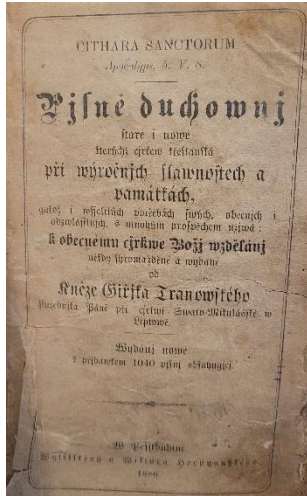 CITHARA SANCTORUM
Apocalyps. 5. V. 8.
Pjsně duchownj
staré i nowé
kterýchž cýrkew křesťanská
při wýročnjch slawnostech a
památkách,
gakož i wšelikých potřebách swých, obecných i
obzwláštnjch, s mnohým prospěchem užjwá:
k obecnému cýrkwe Božj wzdělánj
někdy shromážděné a wydané
od
Kněze Giřjka Tranowského
služebnjka Páně při cýrkwi Swato-Mikulášské w
Liptowě.
Wydánj nowé
s přjdawkem 1040 pjsnj obsahugjcý
W Pešťbudjně
Wiktora Hornyanského
1886